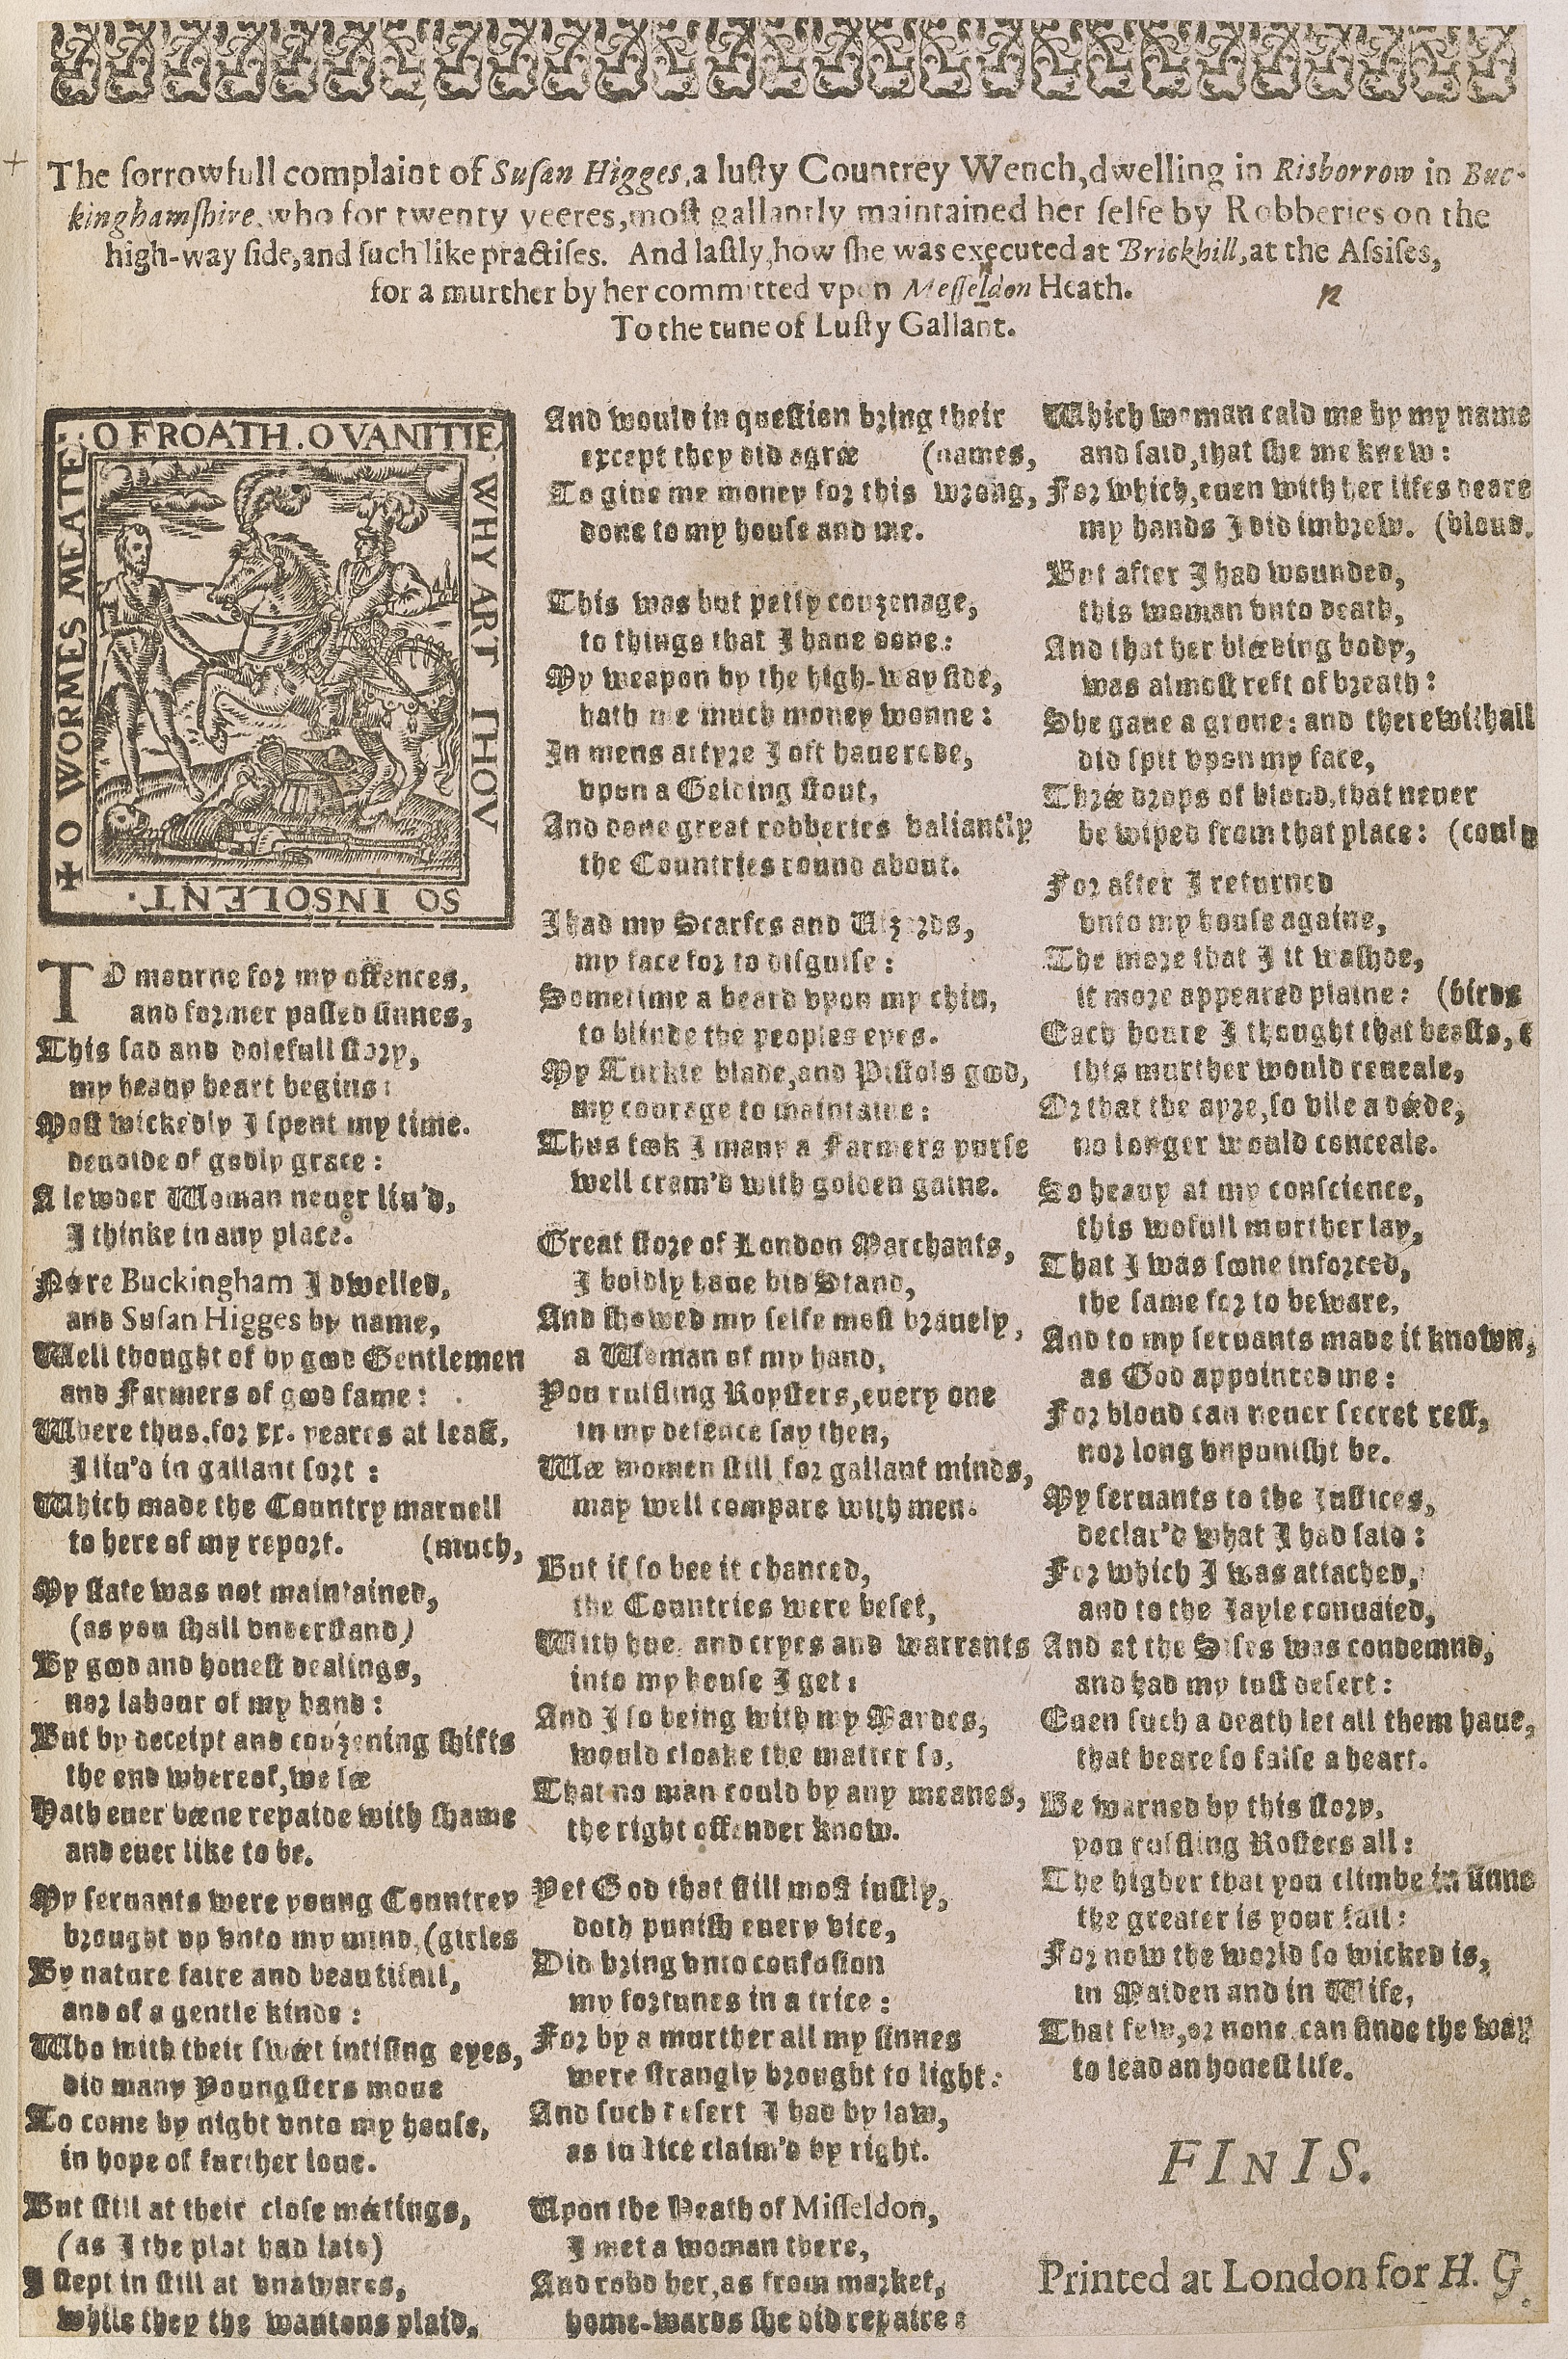 The sorrowfull complaint of Susan Higges, a lusty Countrey Wench, dwelling in Risborrow in Buc-
kinghamshire, who for twenty yeeres, most gallantly maintained her selfe by Robberies on the
high-way side, and such like practises. And lastly, how she was executed at Brickhill, at the Assises,
for a murther by her committed vpon Messeldon Heath.
n
To the tune of Lusty Gallant.
O FROATH. O VANITIE
WHY ART THOV
SO INSOLENT.
O WORMES MEATE
TO mourne for my offences,
and former passed sinnes,
This sad and dolefull story,
my heauy heart begins:
Most wickedly I spent my time.
deuoide of godly grace:
A lewder Woman neuer liu'd,
I thinke in any place.
Nere Buckingham I dwelled,
and Susan Higges by name,
Well thought of by good Gentlemen
and Farmers of good fame:
Where thus, for xx. yeares at least,
I liu'd in gallant sort:
Which made the Country maruell
to here of my report. (much,
My state was not maintained,
(as you shall vnderstand)
By good and honest dealings,
nor labour of my hand:
But by deceipt and couzening shifts
the end whereof, we see
Hath euer beene repaide with shame
and euer like to be.
My seruants were young Countrey
brought vp vnto my mind, (girles
By nature faire and beautifull,
and of a gentle kinde:
Who with their sweet intising eyes,
did many Youngsters moue
To come by night vnto my house,
in hope of further loue.
But still at their close meetings,
(as I the plot had laid)
I stept in still at vnawares,
while they the wantons plaid,
And would in question bring their
except they did agree (names,
To giue me money for this wrong,
done to my house and me.
This was but petty couzenage,
to things that I haue done:
My weapon by the high-way side,
hath me much money wonne:
In mens attyre I oft haue rode,
vpon a Gelding stout,
And done great robberies valiantly
the Countries round about.
I had my Scarfes and Vizards,
my face for to disguise:
Sometime a beard vpon my chin,
to blinde the peoples eyes.
My Turkie blade, and Pistols good,
my courage to maintaine:
Thus took I many a Farmers purse
well cram'd with golden gaine.
Great store of London Marchants,
I boldly haue bid Stand,
And showed my selfe most brauely,
a Woman of my hand,
You rufling Roysters, euery one
in my defence say then,
Wee women still for gallant minds,
may well compare with men.
But if so bee it chanced,
the Countries were beset,
With hue, and cryes and warrants
into my house I get:
And I so being with my Mardes,
would cloake the matter so,
That no man could by any meanes,
the right offender know.
Yet God that still most iustly,
doth punish euery vice,
Did bring vnto confusion
my fortunes in a trice:
For by a murther all my sinnes
were strangly brought to light:
And such desert I had by law,
as iustice claim'd by right.
Upon the Heath of Misseldon,
I met a woman there,
And robd her, as from market,
home-wards she did repaire:
Which woman cald me by my name
and said, that she me knew:
For which, euen with her lifes deare
my hands I did imbrew. (bloud.
But after I had wounded,
this woman vnto death,
And that her bleeding body,
was almost reft of breath:
She gaue a grone: and therewithall
did spit vpon my face,
Three drops of bloud, that neuer
be wiped from that place: (could
For after I returned
vnto my house againe,
The more that I it washde,
it more appeared plaine: (birds
Each houre I thought that beasts, &
this murther would reueale,
Or that the ayre, so vile a deede,
no longer would conceale.
So heauy at my conscience,
this wofull murther lay,
That I was soone inforced,
the same for to beware,
And to my seruants made it known,
as God appointed me:
For bloud can neuer secret rest,
nor long vnpunisht be.
My seruants to the Iustices,
declar'd what I had said:
For which I was attached,
and to the Iayle conuaied,
And at the Sises was condemnd,
and had my iust desert:
Euen such a death let all them haue,
that beare so false a heart.
Be warned by this story,
you rufling Rosters all:
The higher that you climbe in sinne
the greater is your fall:
For now the world so wicked is,
in Maiden and in Wife,
That few, or none can finde the way
to lead an honest life.
FINIS.
Printed at London for H. G.